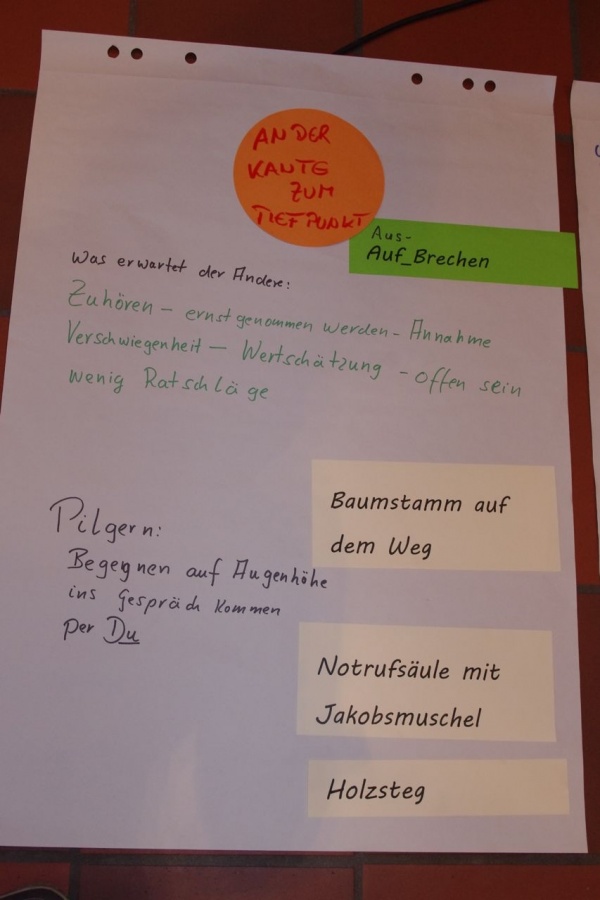 AN DER
KANTE
ZUM
TIEFPUNKT
Aus-
Auf_Brechen
Was erwartet der Andere:
Zuhören - ernst genommen werden - Annahme
Verschwiegenheit - Wertschätzung - offen sein
wenig Ratschläge
Baumstamm auf
dem Weg
Pilgern:
Begegnen auf Augenhöhe
ins Gespräch kommen
per Du
Notrufsäule mit
Jakobsmuschel
Holzsteg